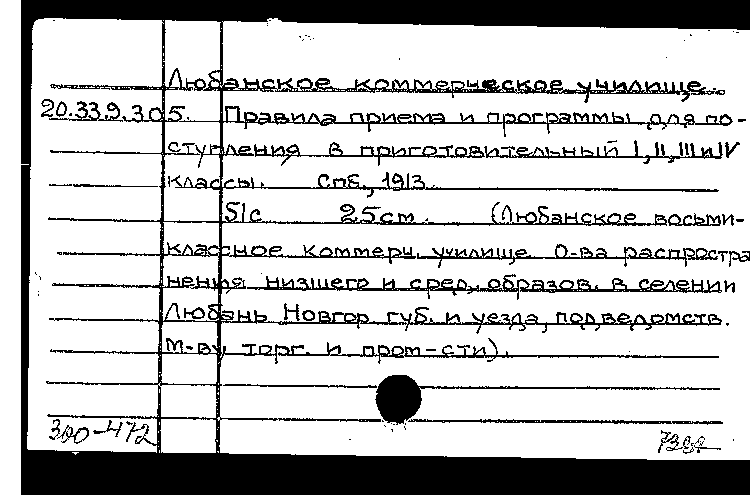 Любанское коммерческое училище.
20.33.9.305. Правила приема и программы для по-
ступления в приготовительный I, II, III и IV
классы. Спб., 1913.
51с 25см. (Любанское восьми-
классное коммерч. училище О-ва распростра
нения низшего и сред. образов. в селении
Любань Новгор губ. и уезда, подведомств.
М-ву торг. и пром-сти).
300-472